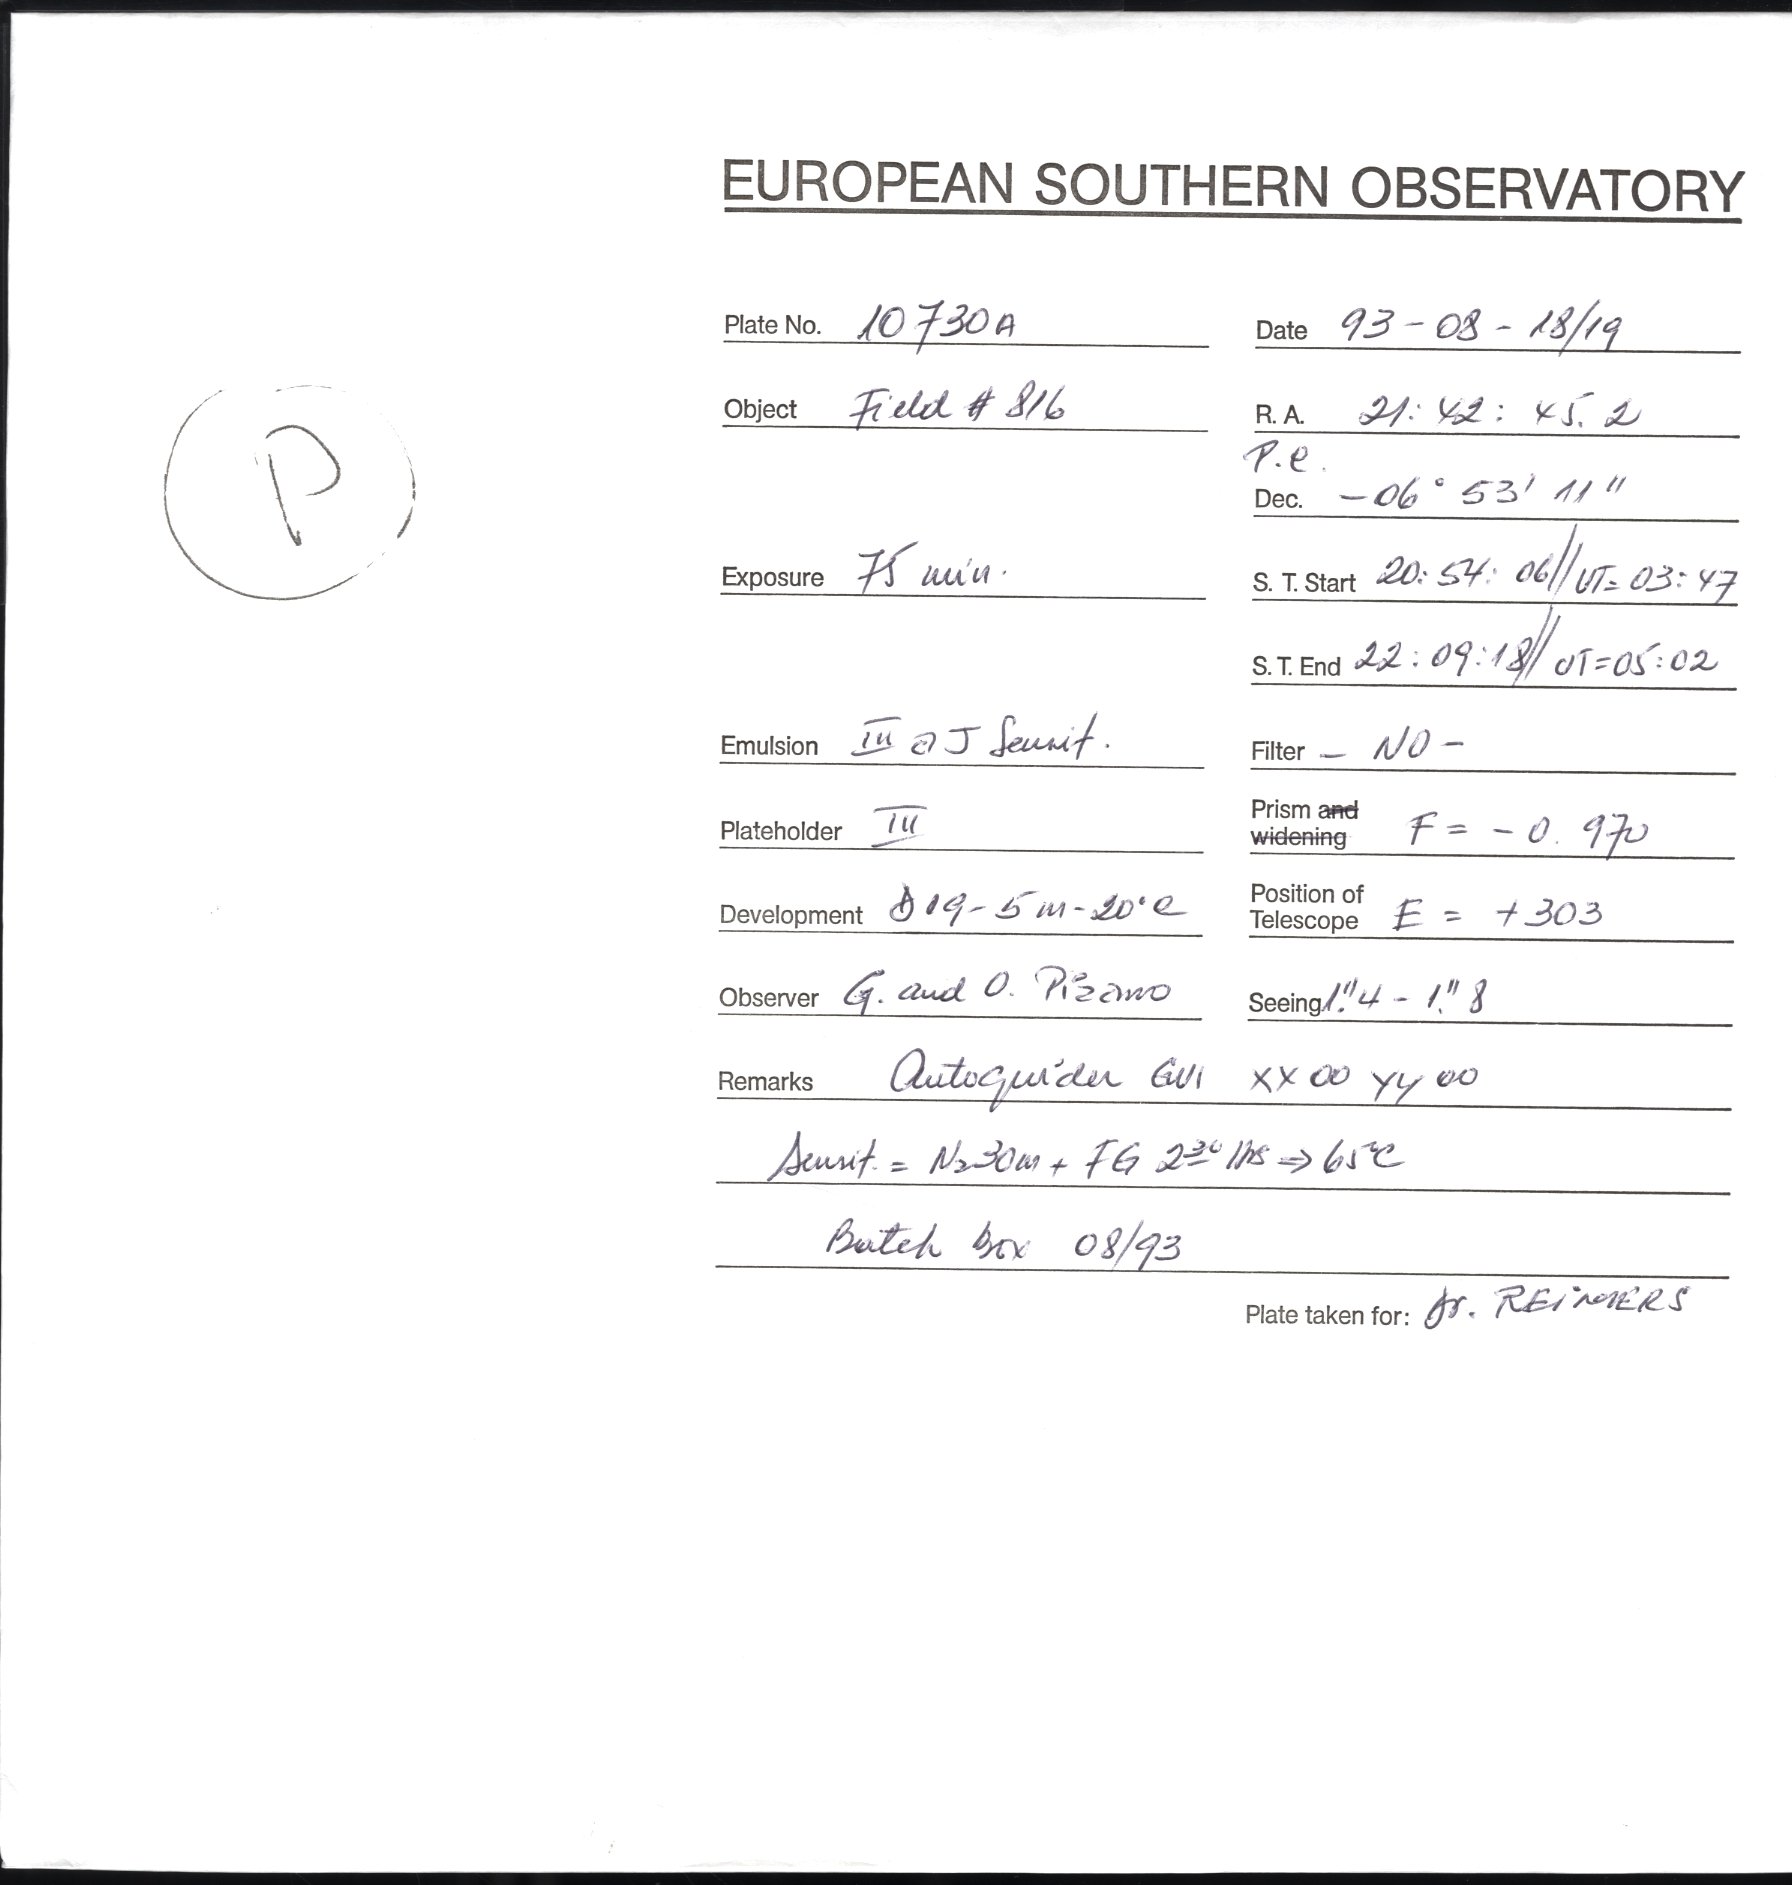 EUROPEAN SOUTHERN OBSERVATORY
Plate No. 10730A Date 93-08-18/19
Object Field # 816 R. A. 21: 42: 45. 2
P.e.
Dec. -06° 53' 11"
P
Exposure 75 min. S. T. Start 20: 54: 06// UT= 03: 47
S. T. End 22: 09: 18// UT=05: 02
Emulsion III a J Sensit. Filter - NO -
Prism and
Plateholder III widening F = - 0. 970
Position of
Development D19-5m-20°C Telescope E = +303
Observer G. and O. Pizarro Seeing 1."4 - 1."8
Remarks Autoguider GVI XX 00 YY 00
Sensit. = N₂30m + FG 2³⁰ Hrs ⇒ 65°C
Batch box 08/93
Plate taken for: Dr. REIMERS